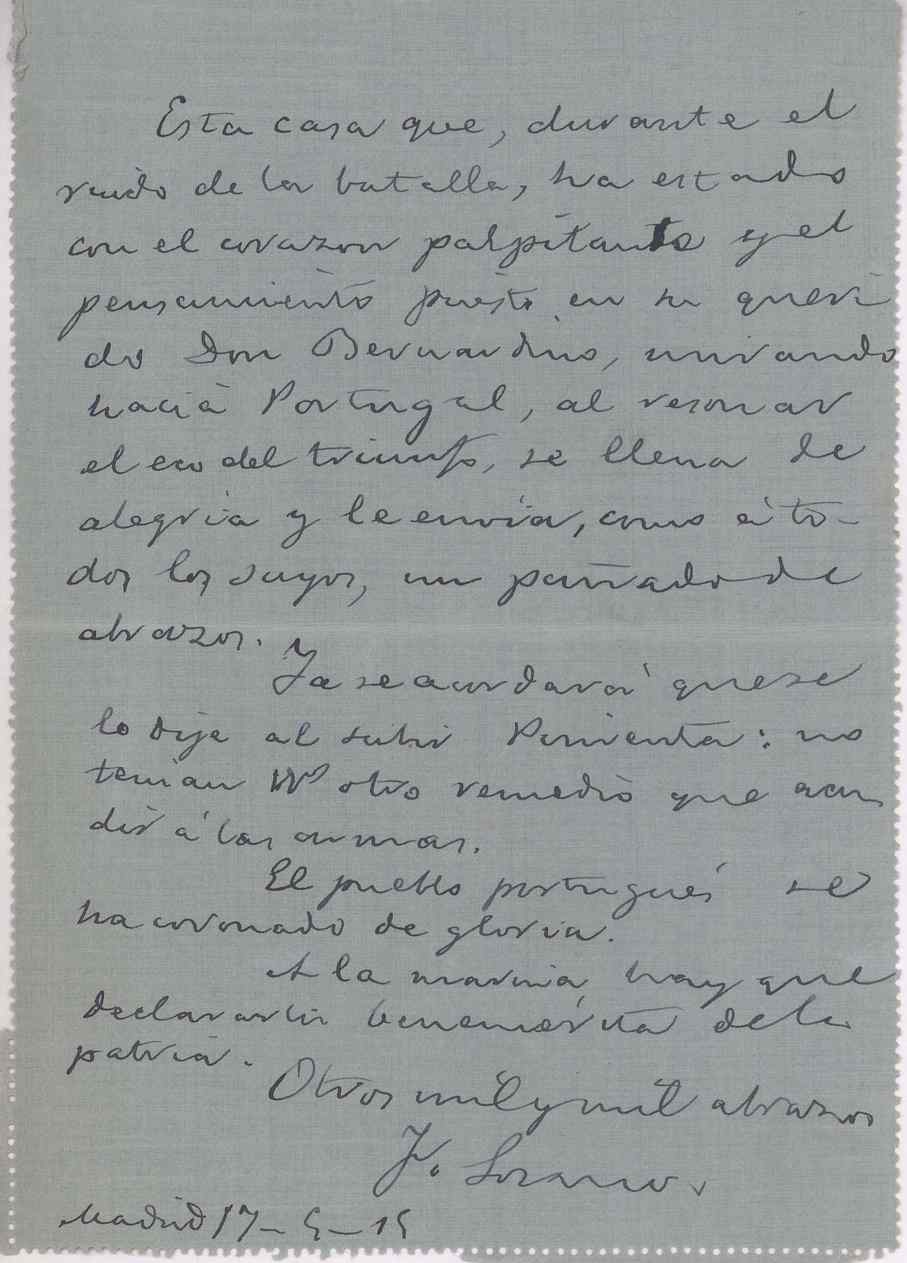 Esta casa que, durante el
ruido de la batalla, ha estado
con el corazon palpitante y el
pensamiento puesto en su queri
do Don Bernardino, mirando
hacia Portugal, al resonar
el eco del triunfo, se llena de
alegria y le envia, como á to-
dos los suyos, un puñado de
abrazos.
Ya se acordará que se
lo dije al subir Pimenta: no
tenian otro remedio que acu
dir á las armas.
El pueblo portugués se
ha coronado de gloria.
A la marina hay que
declararla benemérita de la
patria.
Otros mil y mil abrazos
F. Lozano.
Madrid 17-5-15